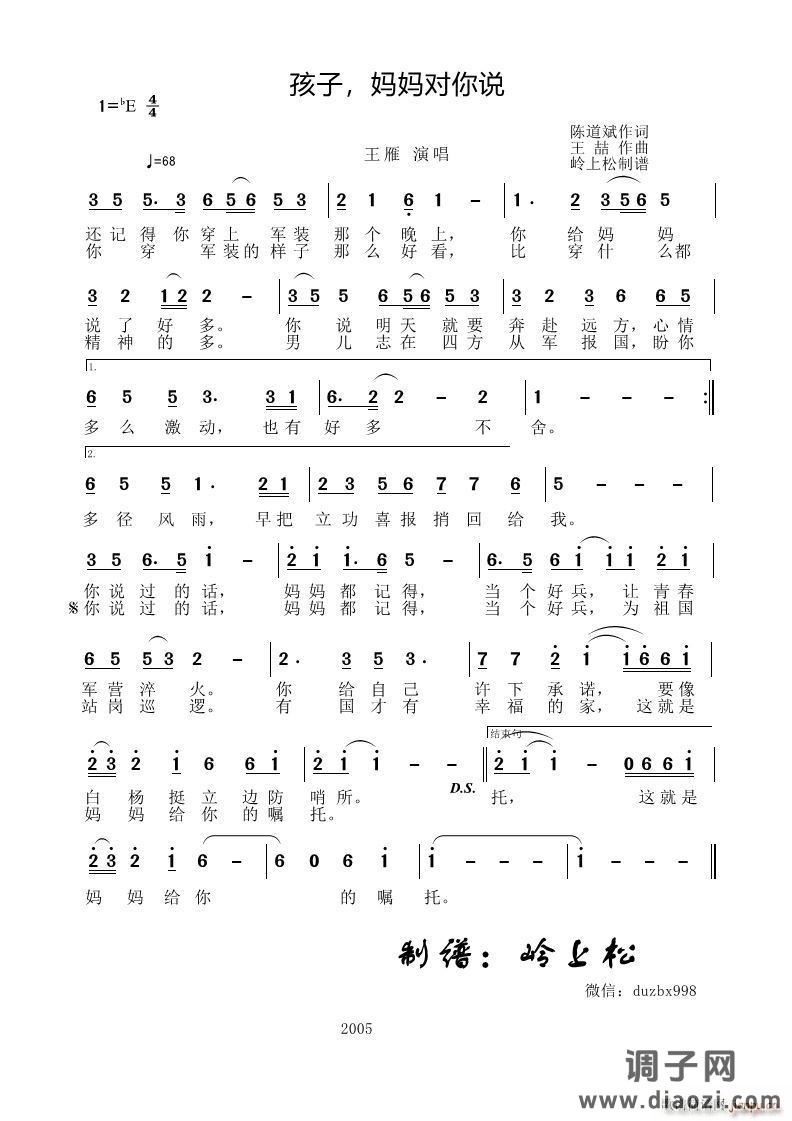 孩子，妈妈对你说
1=♭E 4/4
陈道斌作词
王雁 演唱
王 喆 作曲
♩=68
岭上松制谱
3 5 5. 3 6 5 6 5 3 | 2 1 6 1 - | 1. 2 3 5 6 5 |
还记得你穿上 军装 那个晚上， 你给妈 妈
你 穿 军装的样子 那么好看， 比穿什 么都
3 2 1 2 2 - | 3 5 5 6 5 6 5 3 | 2 2 3 6 6 5 |
说了好多。 你说明天就要 奔赴远方，心情
精神的多。 男儿志在四方 从军报国，盼你
1.
6 5 5 3. 3 1 | 6. 2 2 - 2 | 1 - - - :||
多么激动， 也有 好多 不 舍。
2.
6 5 5 1. 2 1 | 2 3 5 6 7 7 6 | 5 - - - |
多径风雨， 早把 立功喜报捎回给 我。
3 5 6. 5 1 - | 2 1 1. 6 5 - | 6. 5 6 1 1 1 |
你说过的话， 妈妈都记得， 当个好兵，让青春
你说过的话， 妈妈都记得， 当个好兵，为祖国
6 5 5 3 2 - | 2. 3 5 3. | 7 7 2 1 1 6 6 1 |
军营淬火。 你 给自己 许下承诺， 要像
站岗巡逻。 有 国才有 幸福的家，这就是
结束句
2 3 2 1 6 6 1 | 2 1 1 - - || 2 1 1 - - | 0 6 6 1 |
D.S.
白杨挺立边防 哨所。 托， 这就是
妈妈给你的嘱 托。
2 3 2 1 6 - | 6 0 6 1 | 1 - - - | 1 - - - ||
妈妈给你 的嘱 托。
制谱：岭上松
微信：duzbx998
2005
调子网
www.diaozi.com